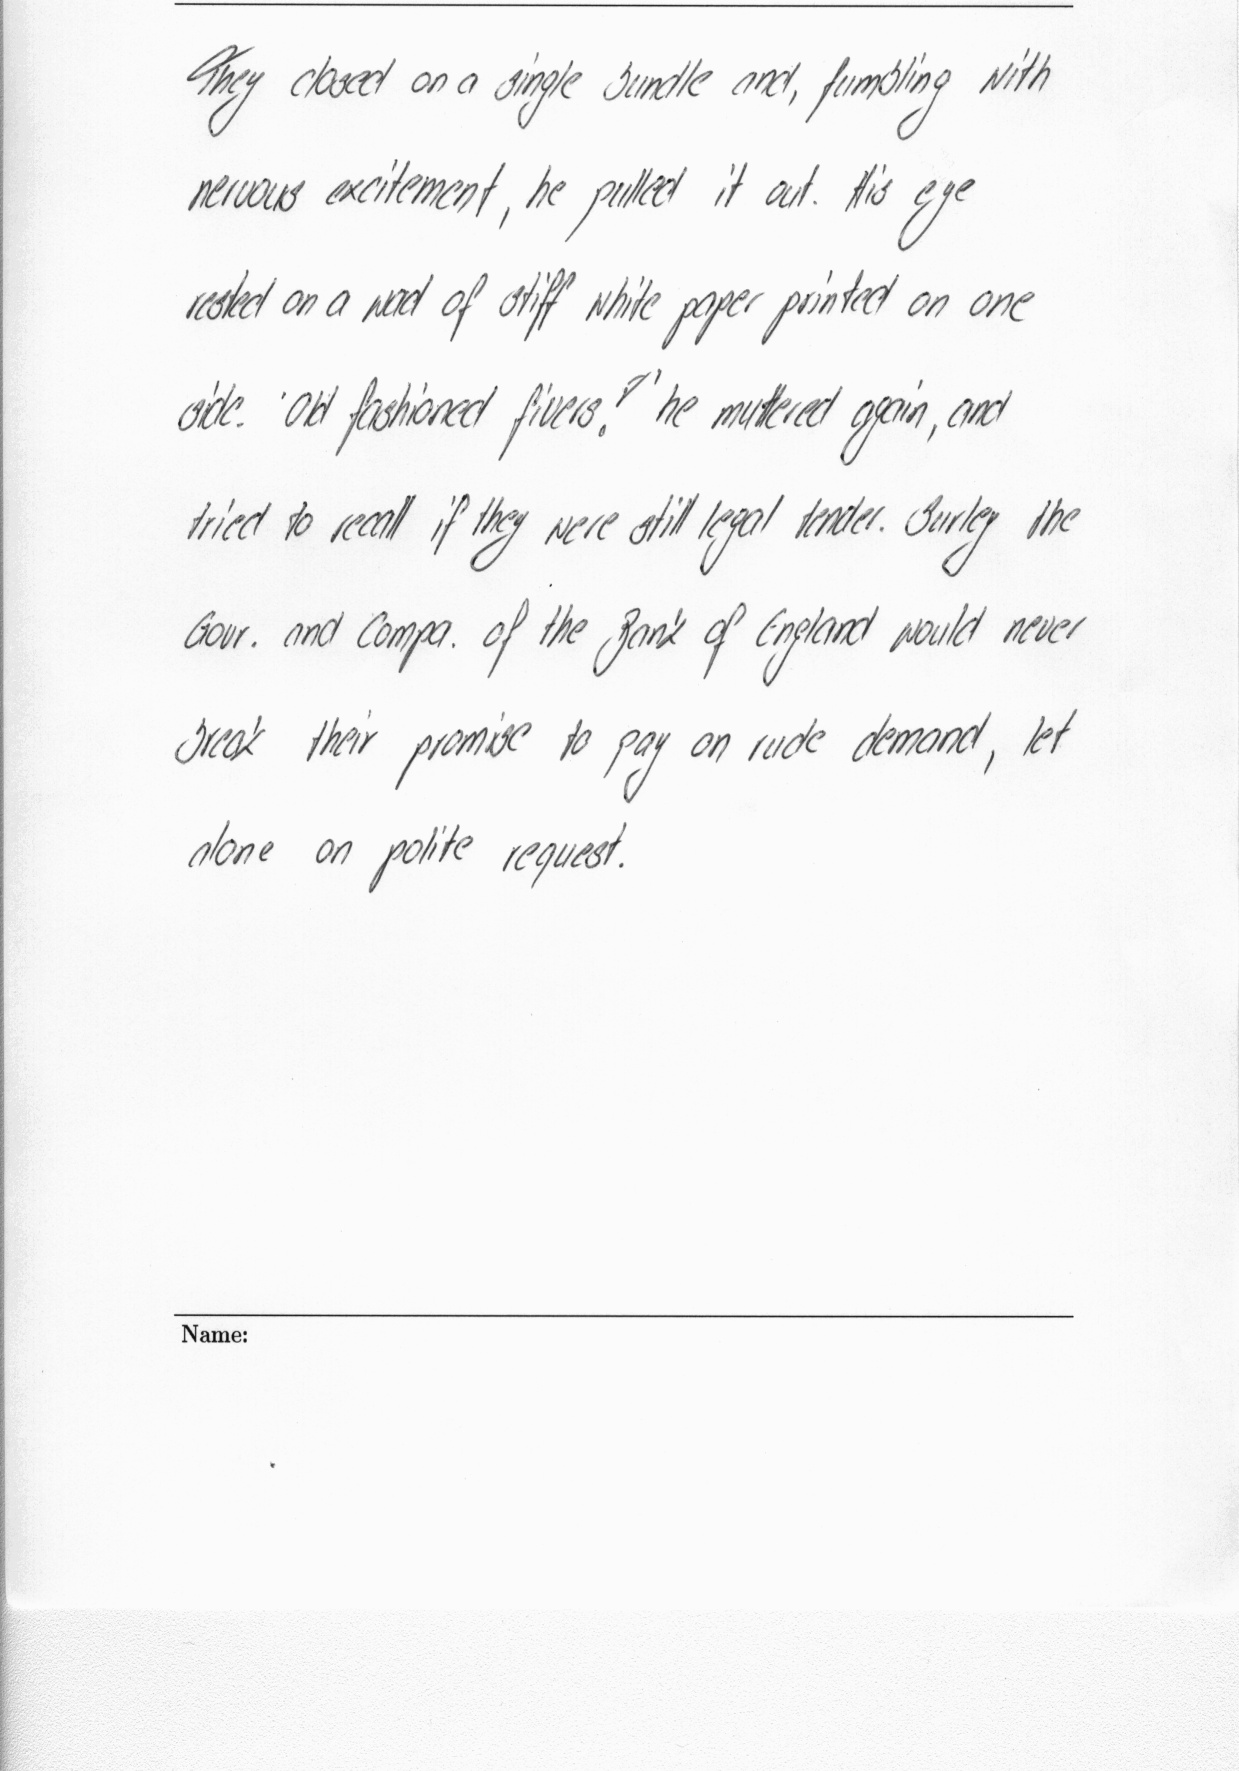 They closed on a single bundle and, fumbling with
nervous excitement, he pulled it out. His eye
rested on a wad of stiff white paper printed on one
side. 'Old fashioned fivers?' he muttered again, and
tried to recall if they were still legal tender. Surley the
Gour. and Compa. of the Bank of England would never
break their promise to pay on rude demand, let
alone on polite request.
Name: